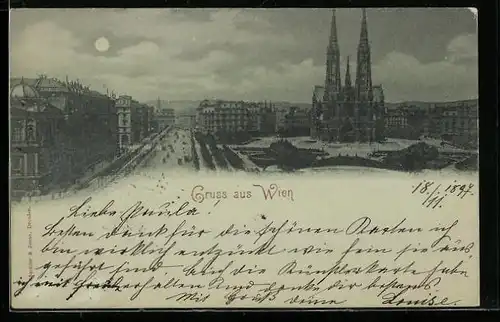 Gruss aus Wien
18./11. 1897.
Liebe Paula!
Besten Dank für die schönen Karten ich
bin wirklich entzückt wie fein sie aus
geführt sind. Auch die Künstlerkarte habe
ich mit erhalten und danke dir bestens
Mit Gruß deine Louise.